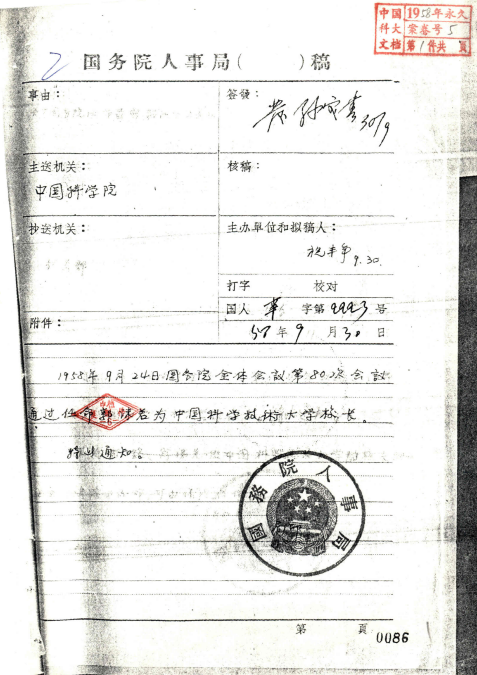 中国 1958年永久
科大 案卷号 5
文档 第1件共 页
国务院人事局( )稿
事由：
签發：
30/9
主送机关：
中国科学院
核稿：
抄送机关：
主办单位和拟稿人：
9.30.
打字 校对
国人 字第 号
附件：
58年9月30日
1958年9月24日国务院全体会议第80次会议
通过任命郭沫若为中国科学技術大学校长。
特此通知。
國務院人事局
第 頁
0086